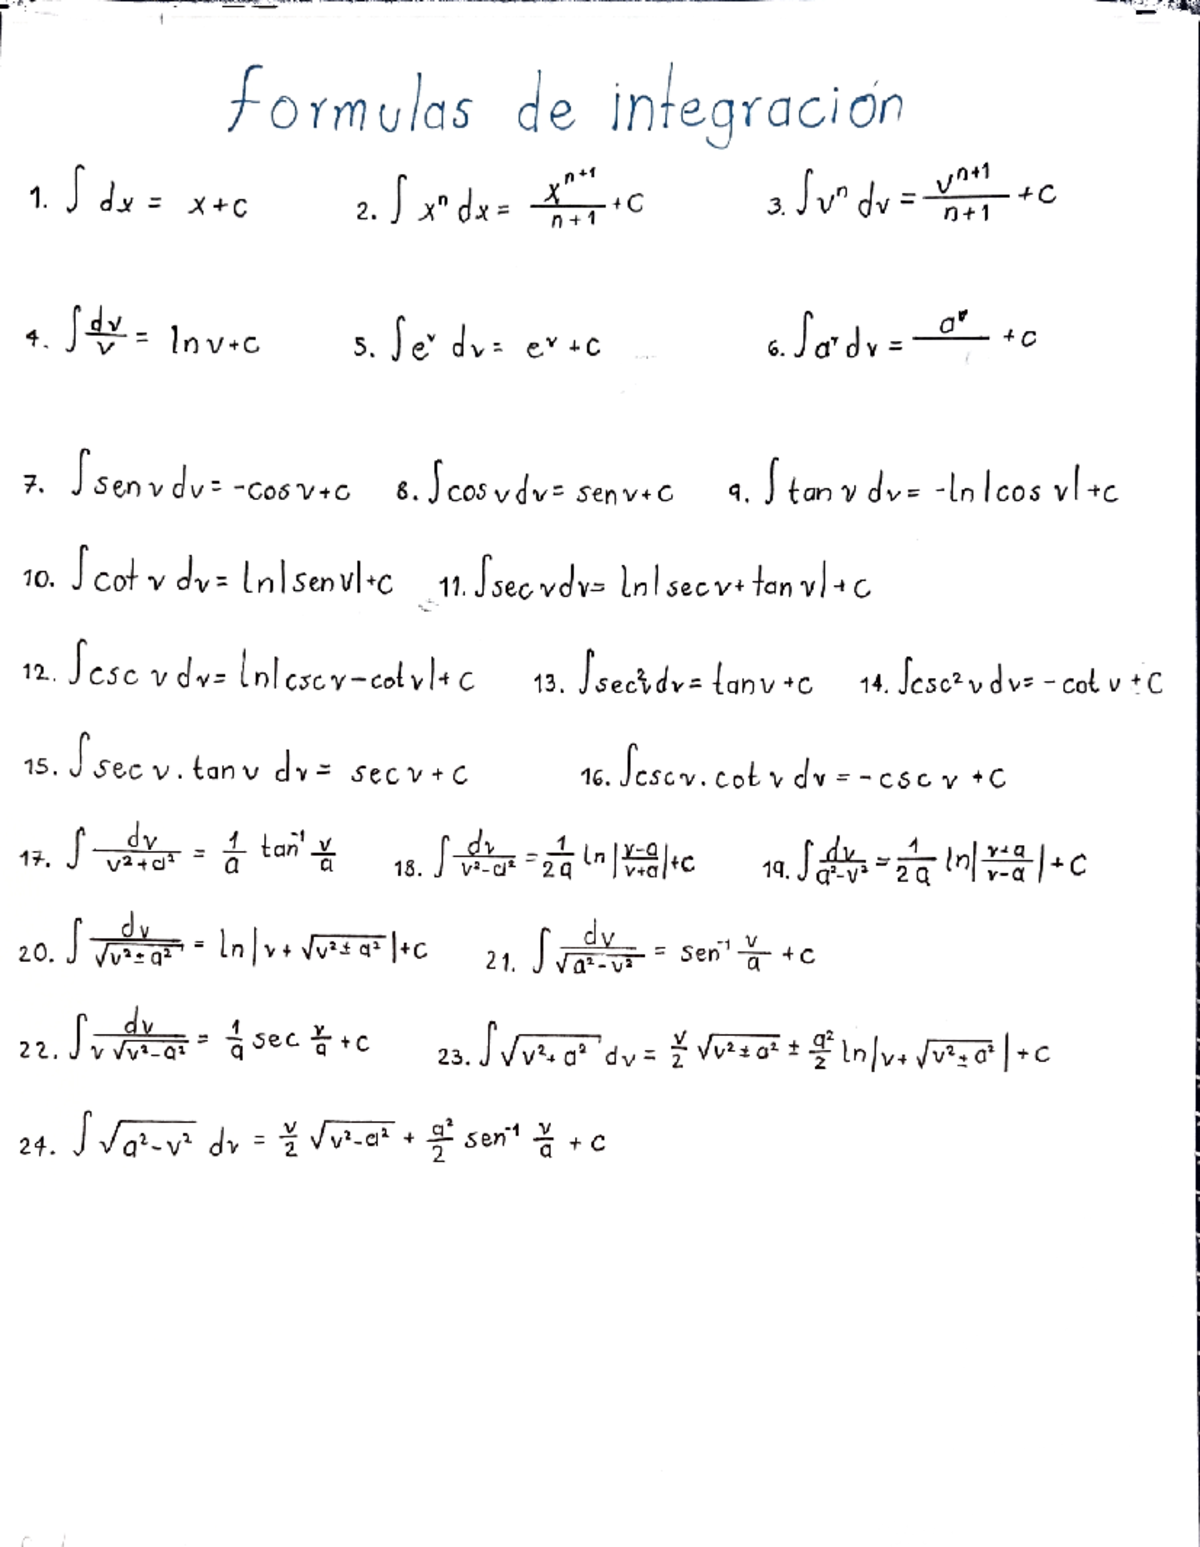 formulas de integración
1. ∫ dx = x+c 2. ∫ xⁿ dx = xⁿ⁺¹/n+1 +C 3. ∫vⁿ dv = vⁿ⁺¹/n+1 +C
4. ∫dv/v = ln v+c 5. ∫eᵛ dv = eᵛ +c 6. ∫aᵛ dv = aᵛ/ +c
7. ∫sen v dv = -cos v+c 8. ∫cos v dv = sen v+c 9. ∫ tan v dv = -ln|cos v|+c
10. ∫cot v dv = ln|sen v|+c 11. ∫sec v dv = ln|sec v+ tan v|+c
12. ∫csc v dv = ln|csc v-cot v|+c 13. ∫sec²v dv = tan v +c 14. ∫csc² v dv = -cot v +C
15. ∫sec v . tan v dv = sec v + c 16. ∫csc v . cot v dv = -csc v +c
17. ∫ dv/v²+a² = 1/a tan⁻¹ v/a 18. ∫ dv/v²-a² = 1/2a ln |v-a/v+a|+c 19. ∫dv/a²-v² = 1/2a ln|v+a/v-a|+c
20. ∫ dv/√v²±a² = ln|v+ √v²± a²|+c 21. ∫ dv/√a²-v² = sen⁻¹ v/a +c
22. ∫ dv/v √v²-a² = 1/a sec v/a +c 23. ∫√v²+ a² dv = v/2 √v²± a² ± a²/2 ln|v+ √v²± a²|+c
24. ∫ √a²-v² dv = v/2 √v²-a² + a²/2 sen⁻¹ v/a + c